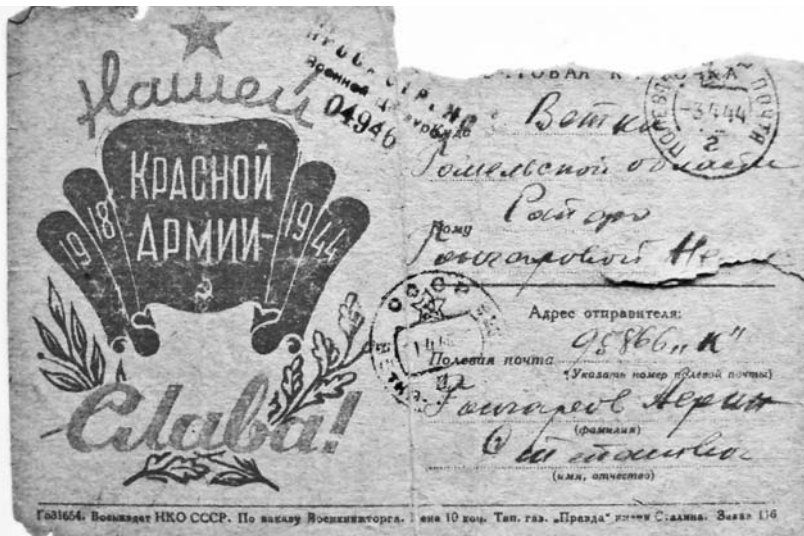 Нашей
КРАСНОЙ
АРМИИ
1918 1944
Слава!
Военной Цензурой
04946
КАРТОЧКА
ПОЛЕВАЯ ПОЧТА
-3 4 44
2
Ветка
Гомельской области
Кому
Гончаровой
СССР
Адрес отправителя:
Полевая почта 95866 „К"
(Указать номер полевой почты)
Гончаров
(фамилия)
(имя, отчество)
Г631654. Воениздат НКО СССР. По заказу Военкниготорга. Цена 10 коп. Тип. газ. „Правда" имени Сталина. Заказ 116